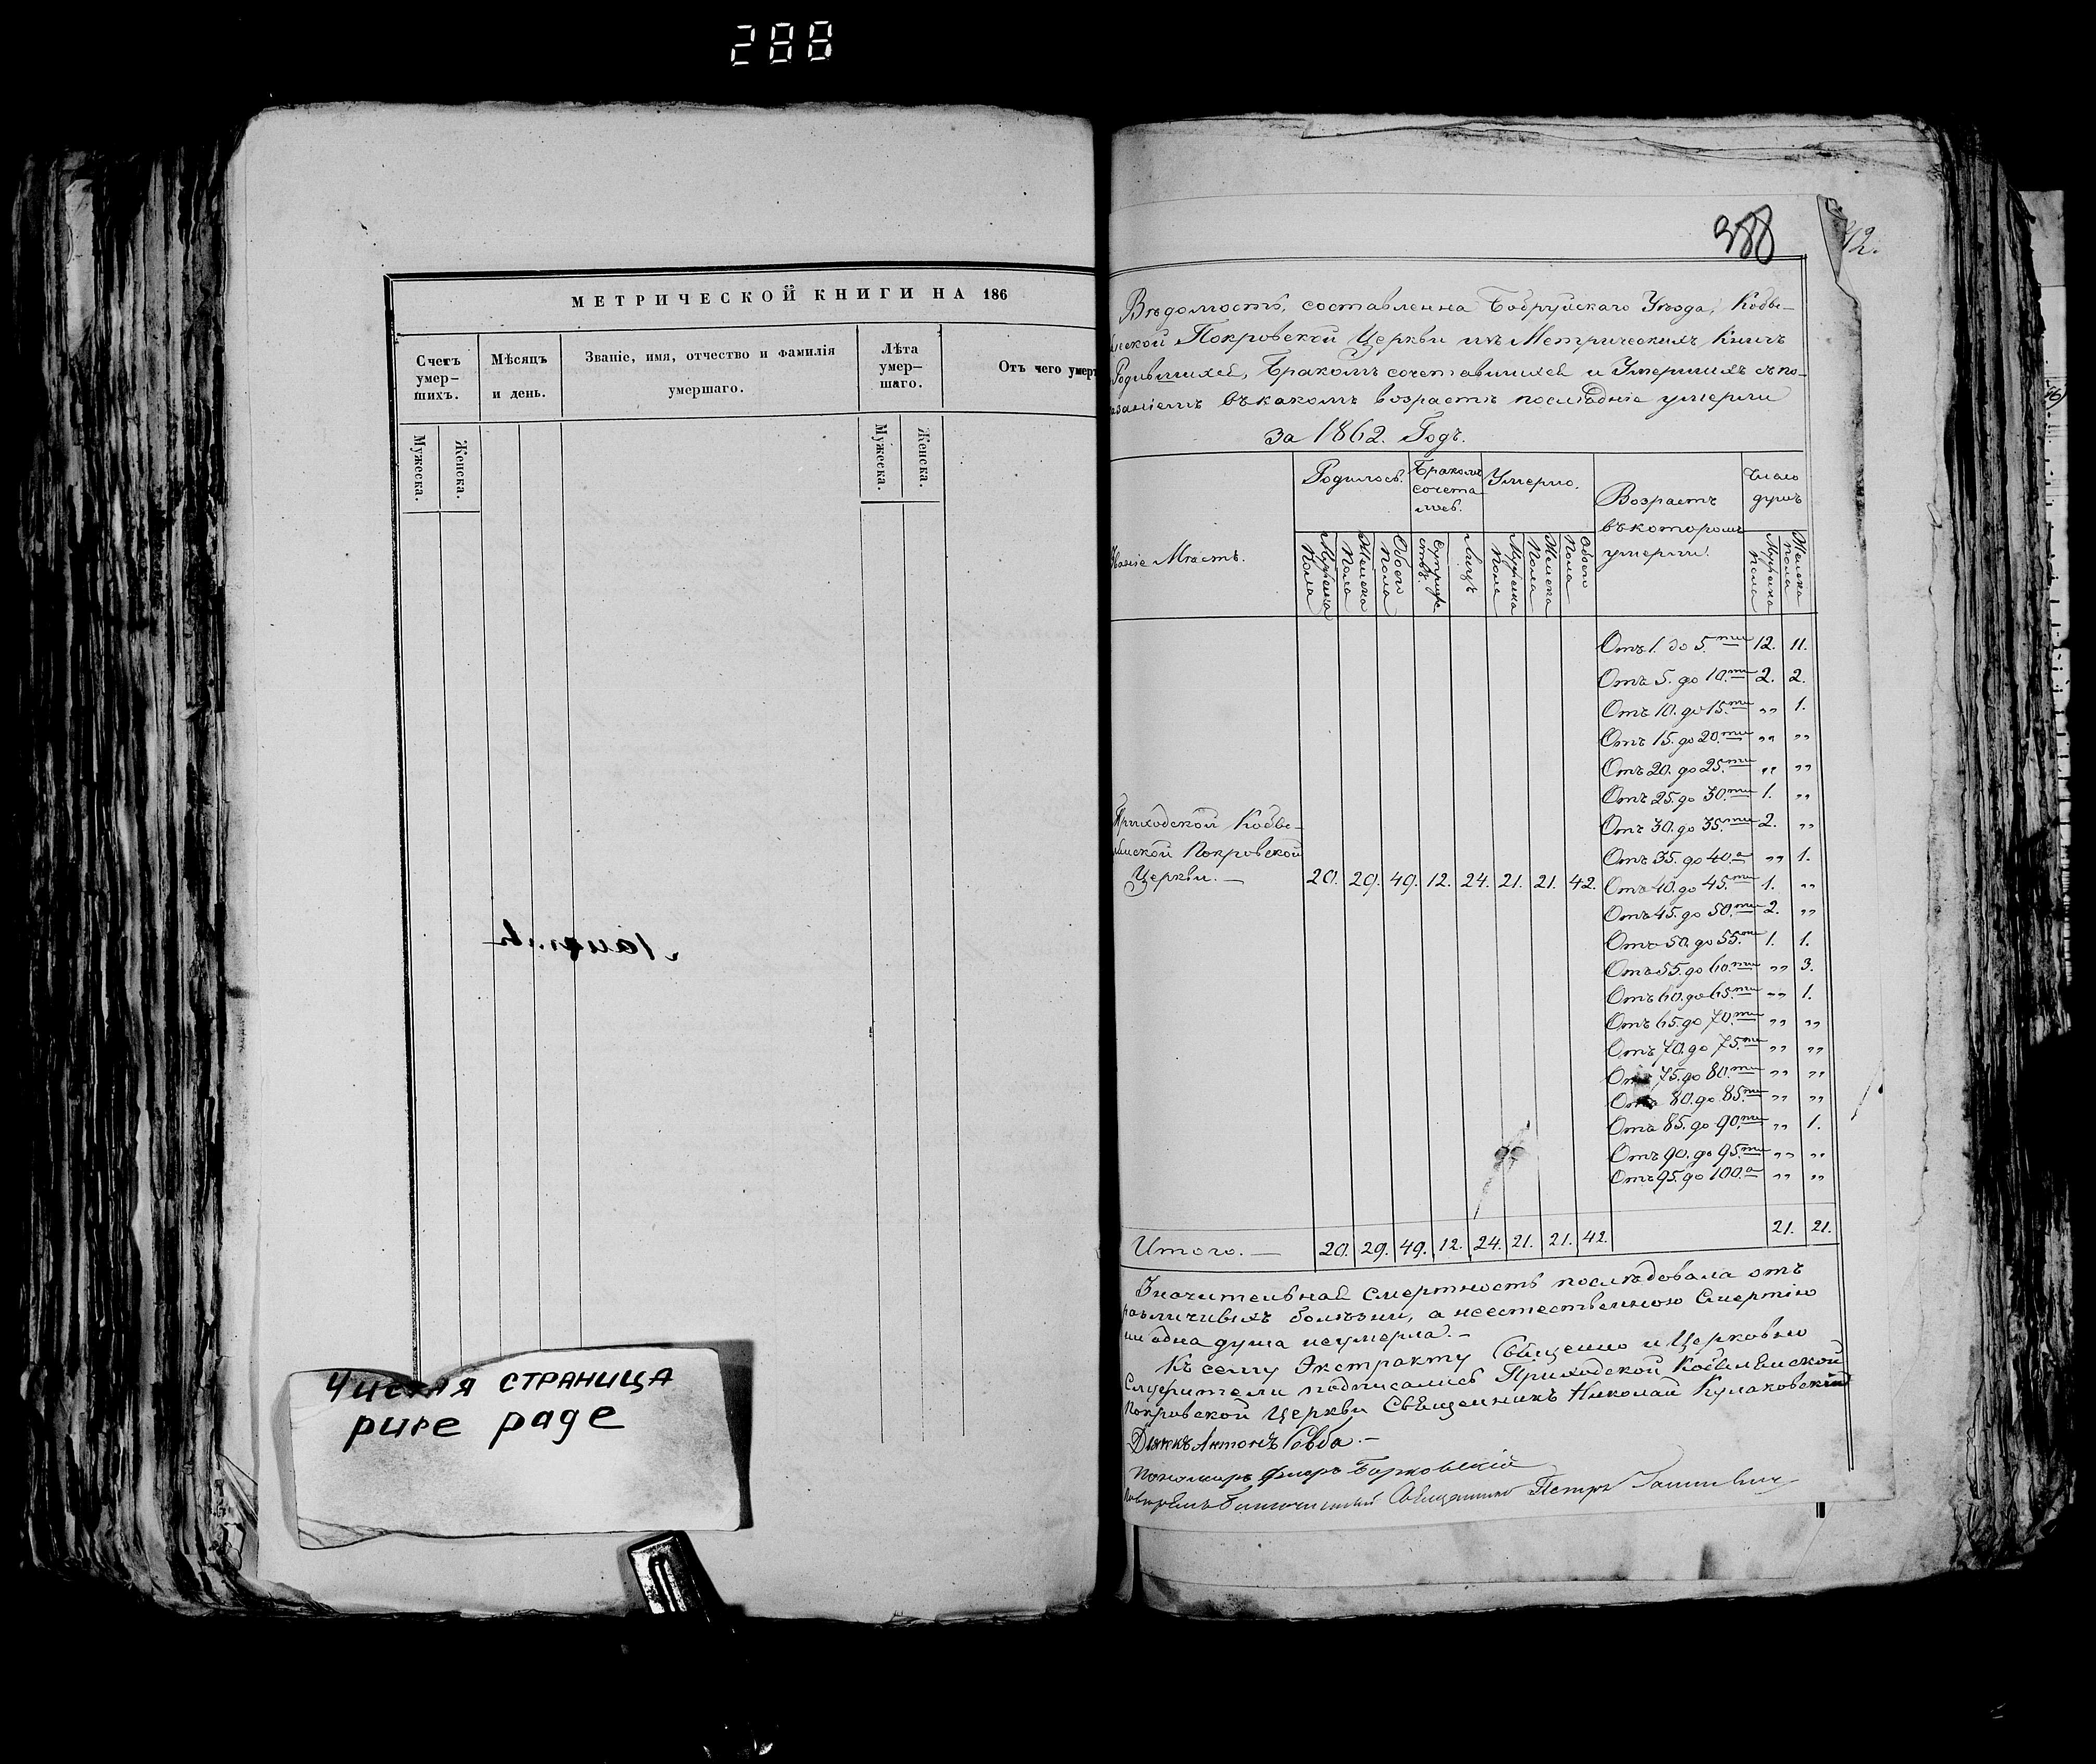 288
МЕТРИЧЕСКОЙ КНИГИ НА 186
Счетъ умер-шихъ.
Мѣсяцъ и день.
Званіе, имя, отчество и фамилія умершаго.
Лѣта умер-шаго.
Отъ чего умер
Мужеска. Женска.
Мужеска. Женска.
Чистая страница
pure page
388
42.
Вѣдомость, составленна Бобруйскаго Уѣзда, Кобы-
Покровской Церкви изъ Метрическихъ Книгъ
Родившихся, Бракомъ сочетавшихся и Умершихъ съ по-
заніемъ въ какомъ возрастѣ послѣдніе умерли
За 1862. Годъ.
Званіе Мѣстъ.
Родилось.
Бракомъ сочета лось.
Умерло.
Возрастъ въ которомъ умерли.
Число душъ
Мужеска Пола
Женска Пола
Обоего Пола
Супруже ствъ.
Лицъ
Мужеска Пола
Женска Пола
Обоего Пола
Мужеска пола
Женска пола
Отъ 1. до 5.ти 12. 11.
Отъ 5. до 10.ти 2. 2.
Отъ 10. до 15.ти „ 1.
Отъ 15. до 20.ти „ „
Отъ 20. до 25.ти „ „
Отъ 25. до 30.ти 1. „
Отъ 30. до 35.ти 2. „
Отъ 35. до 40.а „ 1.
Отъ 40. до 45.ти 1. „
Отъ 45. до 50.ти 2. „
Отъ 50. до 55.ти 1. 1.
Отъ 55. до 60.ти „ 3.
Отъ 60. до 65.ти „ 1.
Отъ 65. до 70.ти „ „
Отъ 70. до 75.ти „ „
Отъ 75. до 80.ти „ „
Отъ 80. до 85.ти „ „
Отъ 85. до 90.ти „ 1.
Отъ 90. до 95.ти „ „
Отъ 95. до 100.а „ „
Приходской Кобы-
Покровской
Церкви. — 20. 29. 49. 12. 24. 21. 21. 42.
Итого. — 20. 29. 49. 12. 24. 21. 21. 42. 21. 21.
Значительная смертность послѣдовала отъ
различныхъ болѣзни, а неестественною Смертію
ни одна душа неумерла. —
Къ сему Экстракту Священно и Церковно
Служители подписались Приходской
Покровской Церкви Священникъ Николай Кулаковскій
Дьякъ Антонъ Говба. —
Пономарь Флоръ Барковскій
Священникъ Петръ